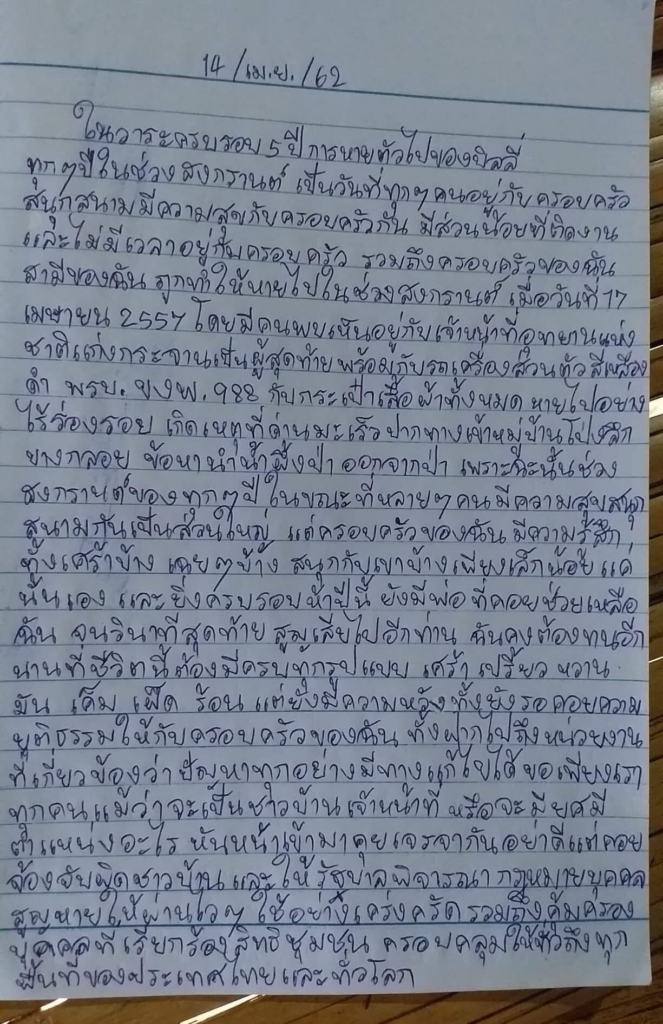 14/เม.ย./62
ในวาระครบรอบ 5 ปี การหายตัวไปของบิลลี่
ทุกๆปีในช่วงสงกรานต์ เป็นวันที่ทุกๆคนอยู่กับครอบครัว
สนุกสนามมีความสุขกับครอบครัวกัน มีส่วนน้อยที่ติดงาน
และไม่มีเวลาอยู่กับครอบครัว รวมถึงครอบครัวของฉัน
สามีของฉัน ถูกทำให้หายไปในช่วงสงกรานต์ เมื่อวันที่ 17
เมษายน 2557 โดยมีคนพบเห็นอยู่กับเจ้าหน้าที่อุทยานแห่ง
ชาติแก่งกระจานเป็นผู้สุดท้าย พร้อมกับรถเครื่องส่วนตัว สีเหลือง
ดำ พรบ. ขงพ.988 กับกระเป๋าเสื้อผ้าทั้งหมด หายไปอย่าง
ไร้ร่องรอย เกิดเหตุที่ด่านมะเร็วปากทางเข้าหมู่บ้านโป่งลึก
บางกลอย ข้อหานำน้ำผึ้งป่า ออกจากป่า เพราะฉะนั้นช่วง
สงกรานต์ของทุกๆปี ในขณะที่หลายๆคนมีความสุขสนุก
สนามกันเป็นส่วนใหญ่ แต่ครอบครัวของฉัน มีความรู้สึก
ทั้งเศร้าบ้าง เฉยๆบ้าง สนุกกับเขาบ้างเพียงเล็กน้อย แค่
นั้นเอง และยิ่งครบรอบห้าปีนี้ ยังมีพ่อที่คอยช่วยเหลือ
ฉัน จนวินาทีสุดท้าย สูญเสียไปอีกท่าน ฉันคงต้องทนอีก
นานที่ชีวิตนี้ต้องมีครบทุกรูปแบบ เศร้า เปรี้ยว หวาน
มัน เค็ม เผ็ด ร้อน แต่ยังมีความหวังทั้งยังรอคอยความ
ยุติธรรมให้กับครอบครัวของฉัน ทั้งฝากไปถึงหน่วยงาน
ที่เกี่ยวข้องว่า ปัญหาทุกอย่างมีทางแก้ไขได้ ขอเพียงเรา
ทุกคน แม้ว่าจะเป็นชาวบ้าน เจ้าหน้าที่ หรือจะมียศมี
ตำแหน่งอะไร หันหน้าเข้ามาคุยเจรจากัน อย่าดีแต่คอย
จ้องจับผิดชาวบ้าน และให้รัฐบาลพิจารณา กฎหมายบุคคล
สูญหายให้ผ่านไวๆ ใช้อย่างเคร่งครัด รวมถึงคุ้มครอง
บุคคลที่เรียกร้องสิทธิชุมชน ครอบคลุมให้ทั่วถึงทุก
พื้นที่ของประเทศไทยและทั่วโลก